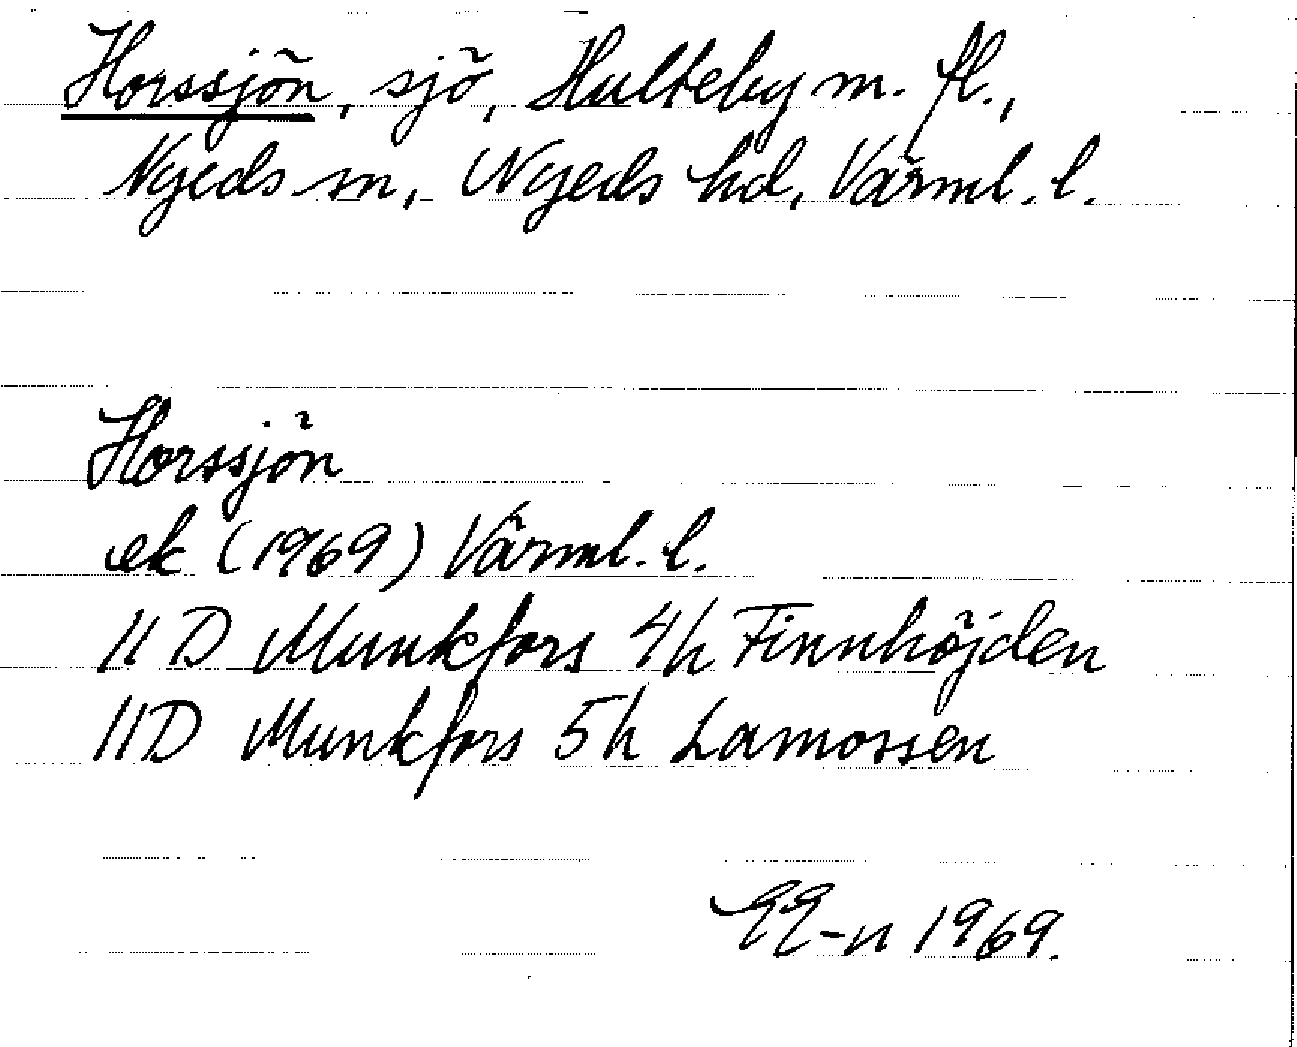 Horssjön, sjö, Hulteby m. fl.,
Nyeds sn, Nyeds hd, Värml. l.
Horssjön
ek (1969) Värml. l.
11 D Munkfors 4h Finnhöjden
11D Munkfors 5h Lamossen
1969.